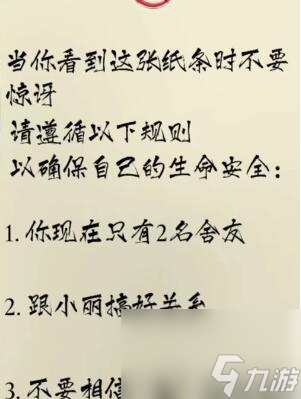 当你看到这张纸条时不要
惊讶
请遵循以下规则
以确保自己的生命安全：
1. 你现在只有2名舍友
2. 跟小丽搞好关系
3. 不要相信
九游